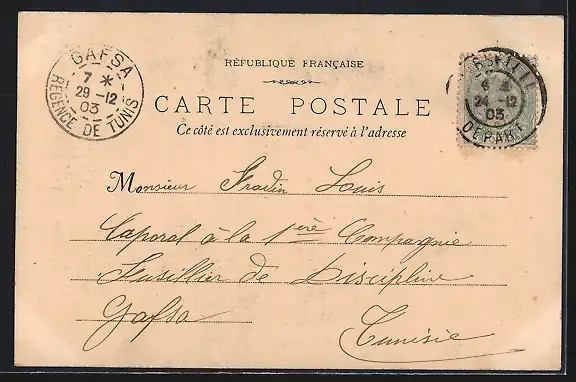 GAFSA
7 *
29 -12
03
REGENCE DE TUNIS
RÉPUBLIQUE FRANÇAISE
CARTE POSTALE
Ce côté est exclusivement réservé à l'adresse
24 -12
03
DEPART
Monsieur Fradin Louis
Caporal à la 1ère Compagnie
Fusillier de Discipline
Gafsa
Tunisie